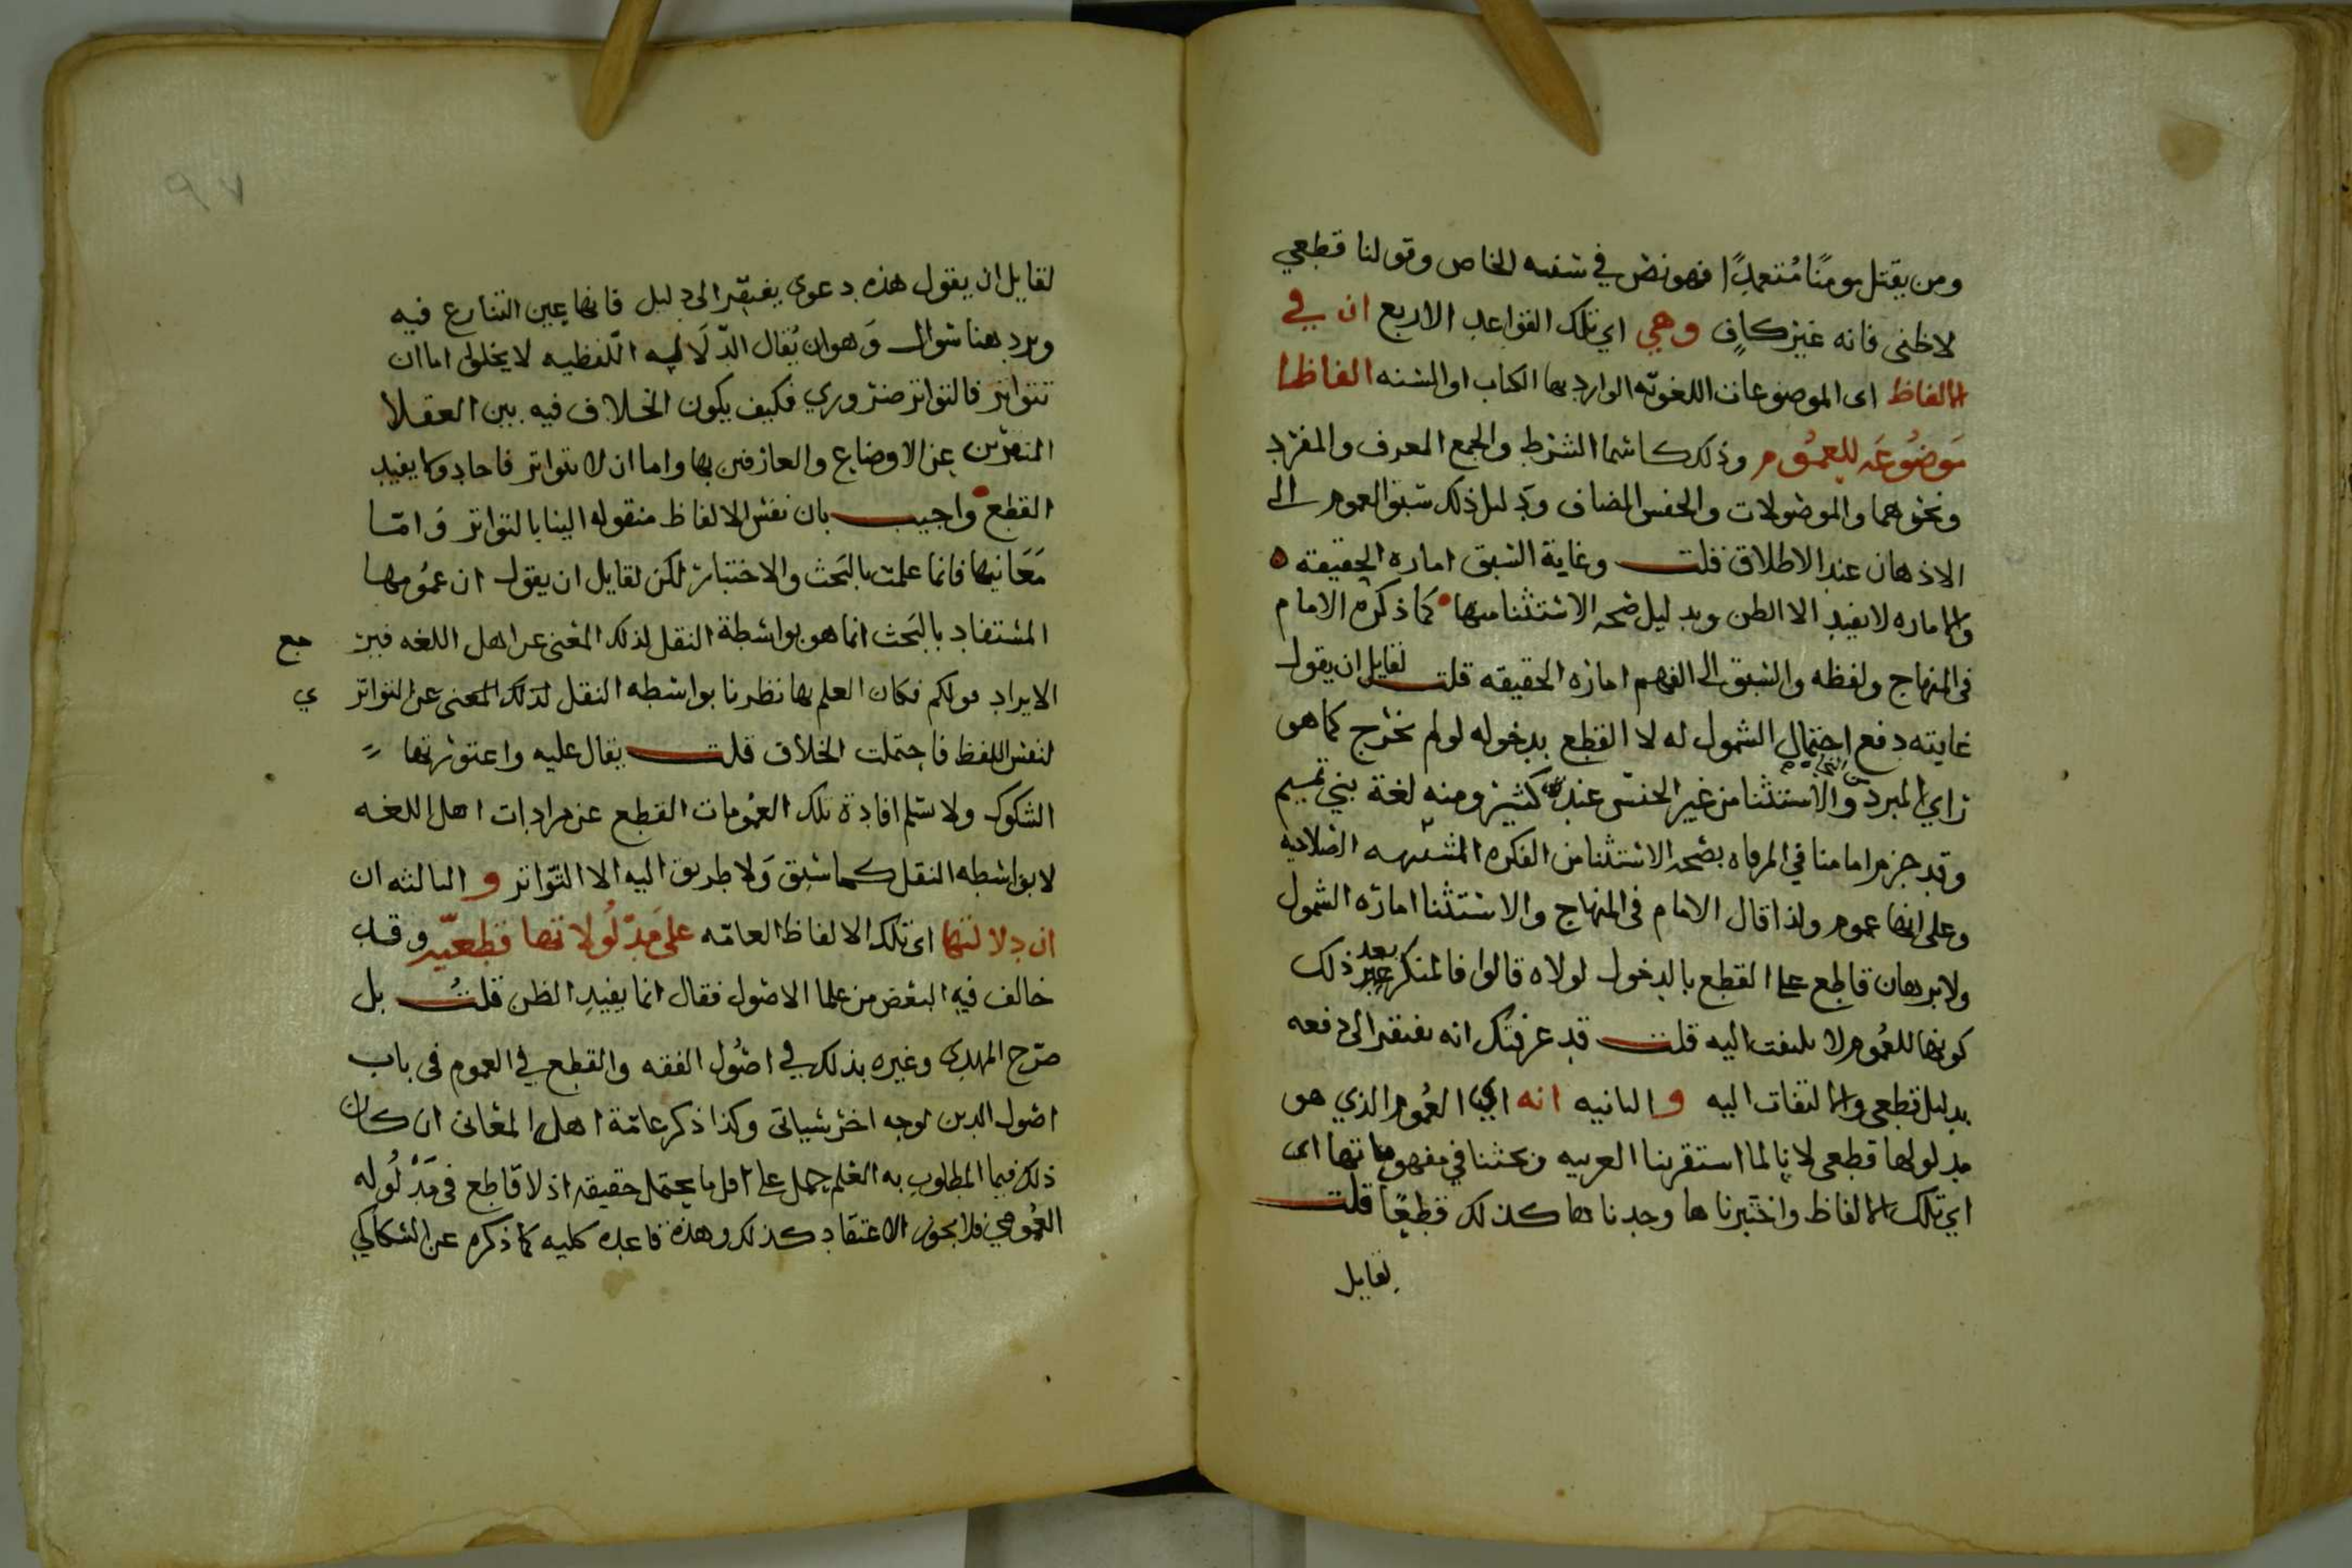 ومن يقتل مومنًا مُتعمدًا فهو نص في سببه الخاص وقولنا قطعي
لا ظني فانه غير كافٍ وهي اي تلك القواعد الاربع ان في
الالفاظ اى الموضوعات اللغويّه الوارد بها الكتاب او السنه الفاظا
مَوضُوعَه للعمُوم وذلك كاسما الشرط والجمع المعرف والمفرد
ونحوهما والموصولات والجنس المضاف ودليل ذلك سبق العموم الى
الاذهان عند الاطلاق قلت وغاية السبق اماره الحقيقه ه
والاماره لا يفيد الا الظن وبدليل صحه الاستثنا منها كما ذكره الامام
في المنهاج ولفظه والسبق الى الفهم اماره الحقيقه قلت لقايل ان يقول
غايته دفع احتمال الشمول له لا القطع بدخوله لو لم نخرج كما هو
راي المبرد والاستثنا من غير الجنس عند كثير ومنه لغة بني تميم
وقد جزم امامنا في المرقاه بصحه الاستثنا من النكره
وعلى انها عموم ولذا قال الامام في المنهاج والاستثنا اماره الشمول
ولا برهان قاطع على القطع بالدخول لولاه قالوا فالمنكر بعد ذلك
كونها للعُموم لا يلتفت اليه قلت قد عرفتك انه يفتقر الى دفعه
بدليل قطعي والالتفات اليه و الثانيه انه اي العُموم الذي هو
مدلولها قطعي لانا لما استقرينا العربيه وبحثنا في مفهوماتها اى
اي تلك الالفاظ واختبرناها وجدناها كذلك قطعًا قلت
لقايل
٩٧
لقايل ان يقول هذه دعوى يفتقر الى دليل فانها عين التنازع فيه
ويرد هنا سوال وَهو ان يُقال الدّلَاله اللّفظيه لا يخلوا اما ان
تتواتر فالتواتر ضروري فكيف يكون الخلاف فيه بين العقلا
عن الاوضاع والعارفين بها واما ان لا يتواتر فاحاد ولا يفيد
القطع واجيب بان نفس الالفاظ منقوله الينا بالتواتر وَامّا
مَعَانيها فانما علمت بالبَحث والاختبار لكن لقايل ان يقول ان عمُومها
المستفاد بالبَحث انما هو بواسطة النقل لذلك المعنى عن اهل اللغه فيرجع
الايراد قولكم فكان العلم بها نظريا بواسطه النقل لذلك المعنى عن التواتر ي
لنفس اللفظ فاحتملت الخلاف قلت يقال عليه واعتورتها
الشكوك ولا سلم افادة تلك العمُومات القطع عن مرادات اهل اللغه
لا بواسطه النقل كما سبق وَلا طريق اليه الا التّواتر و الثالثه ان
ان دلالتها اى تلك الالفاظ العامّه على مَدْلُولاتها قطعيّه وقد
خالف فيه البعض من علما الاصول فقال انما يفيد الظن قلتُ بل
صرّح المهدى وغيره بذلك في اصُول الفقه والقطع في العموم في باب
اصُول الدين لوجه اخر سياتى وكذا ذكر عامّة اهل المعانى ان كان
ذلك فيما المطلوب به العلم حمل على اقل ما يحتمل حقيقه اذ لا قاطع في مَدْلُوله
العُمومي فلا يجوز الاعتقاد كذلك وهذه قاعده كليه كما ذكره عن السكاكي